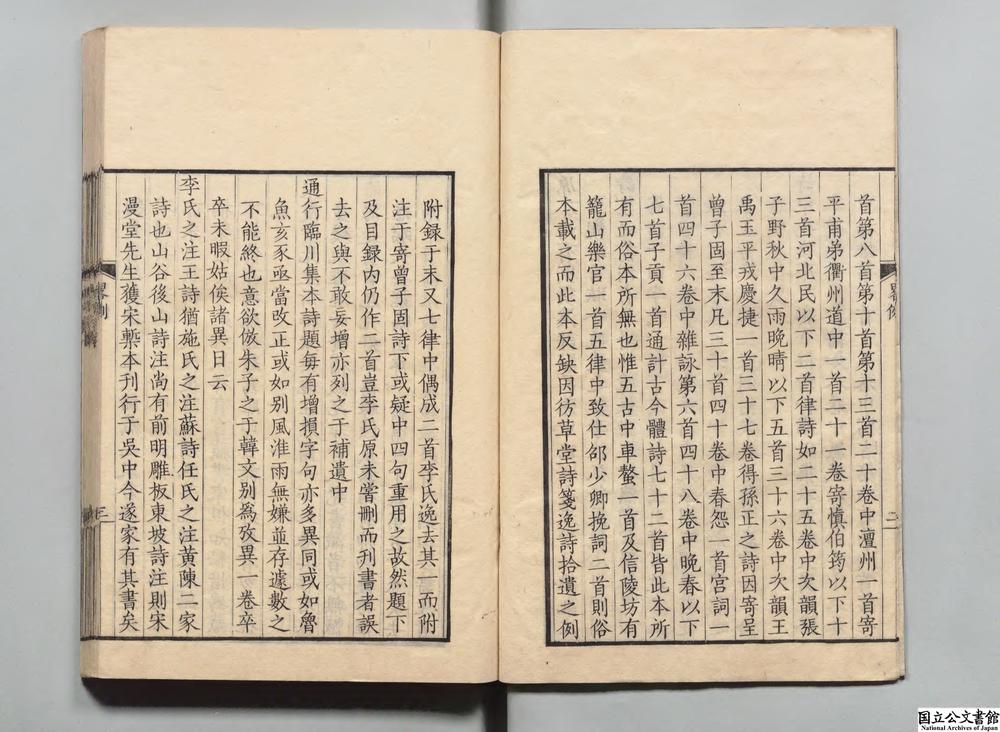 首第八首第十首第十三首二十卷中澶州一首寄
平甫弟衢州道中一首二十一卷寄愼伯筠以下十
三首河北民以下二首律詩如二十五卷中次韻張
子野秋中久雨晚晴以下五首三十六卷中次韻王
禹玉平戎慶捷一首三十七卷得孫正之詩因寄呈
曾子固至末凡三十首四十卷中春怨一首宮詞一
首四十六卷中雜詠第六首四十八卷中晚春以下
七首子貢一首通計古今體詩七十二首皆此本所
有而俗本所無也惟五古中車螯一首及信陵坊有
籠山樂官一首五律中致仕邵少卿挽詞二首則俗
本載之而此本反缺因彷草堂詩箋逸詩拾遺之例
附録于末又七律中偶成二首李氏逸去其一而附
注于寄曾子固詩下或疑中四句重用之故然題下
及目録内仍作二首豈李氏原未嘗刪而刋書者誤
去之與不敢妄增亦列之于補遺中
通行臨川集本詩題每有增損字句亦多異同或如魯
魚亥豕亟當改正或如别風淮雨無嫌並存遽數之
不能終也意欲倣朱子之于韓文别爲攷異一卷卒
卒未暇姑俟諸異日云
李氏之注王詩猶施氏之注蘇詩任氏之注黃陳二家
詩也山谷後山詩注尚有前明雕板東坡詩注則宋
漫堂先生獲宋槧本刊行于吳中今遂家有其書矣
畧例
三
国立公文書館
National Archives of Japan